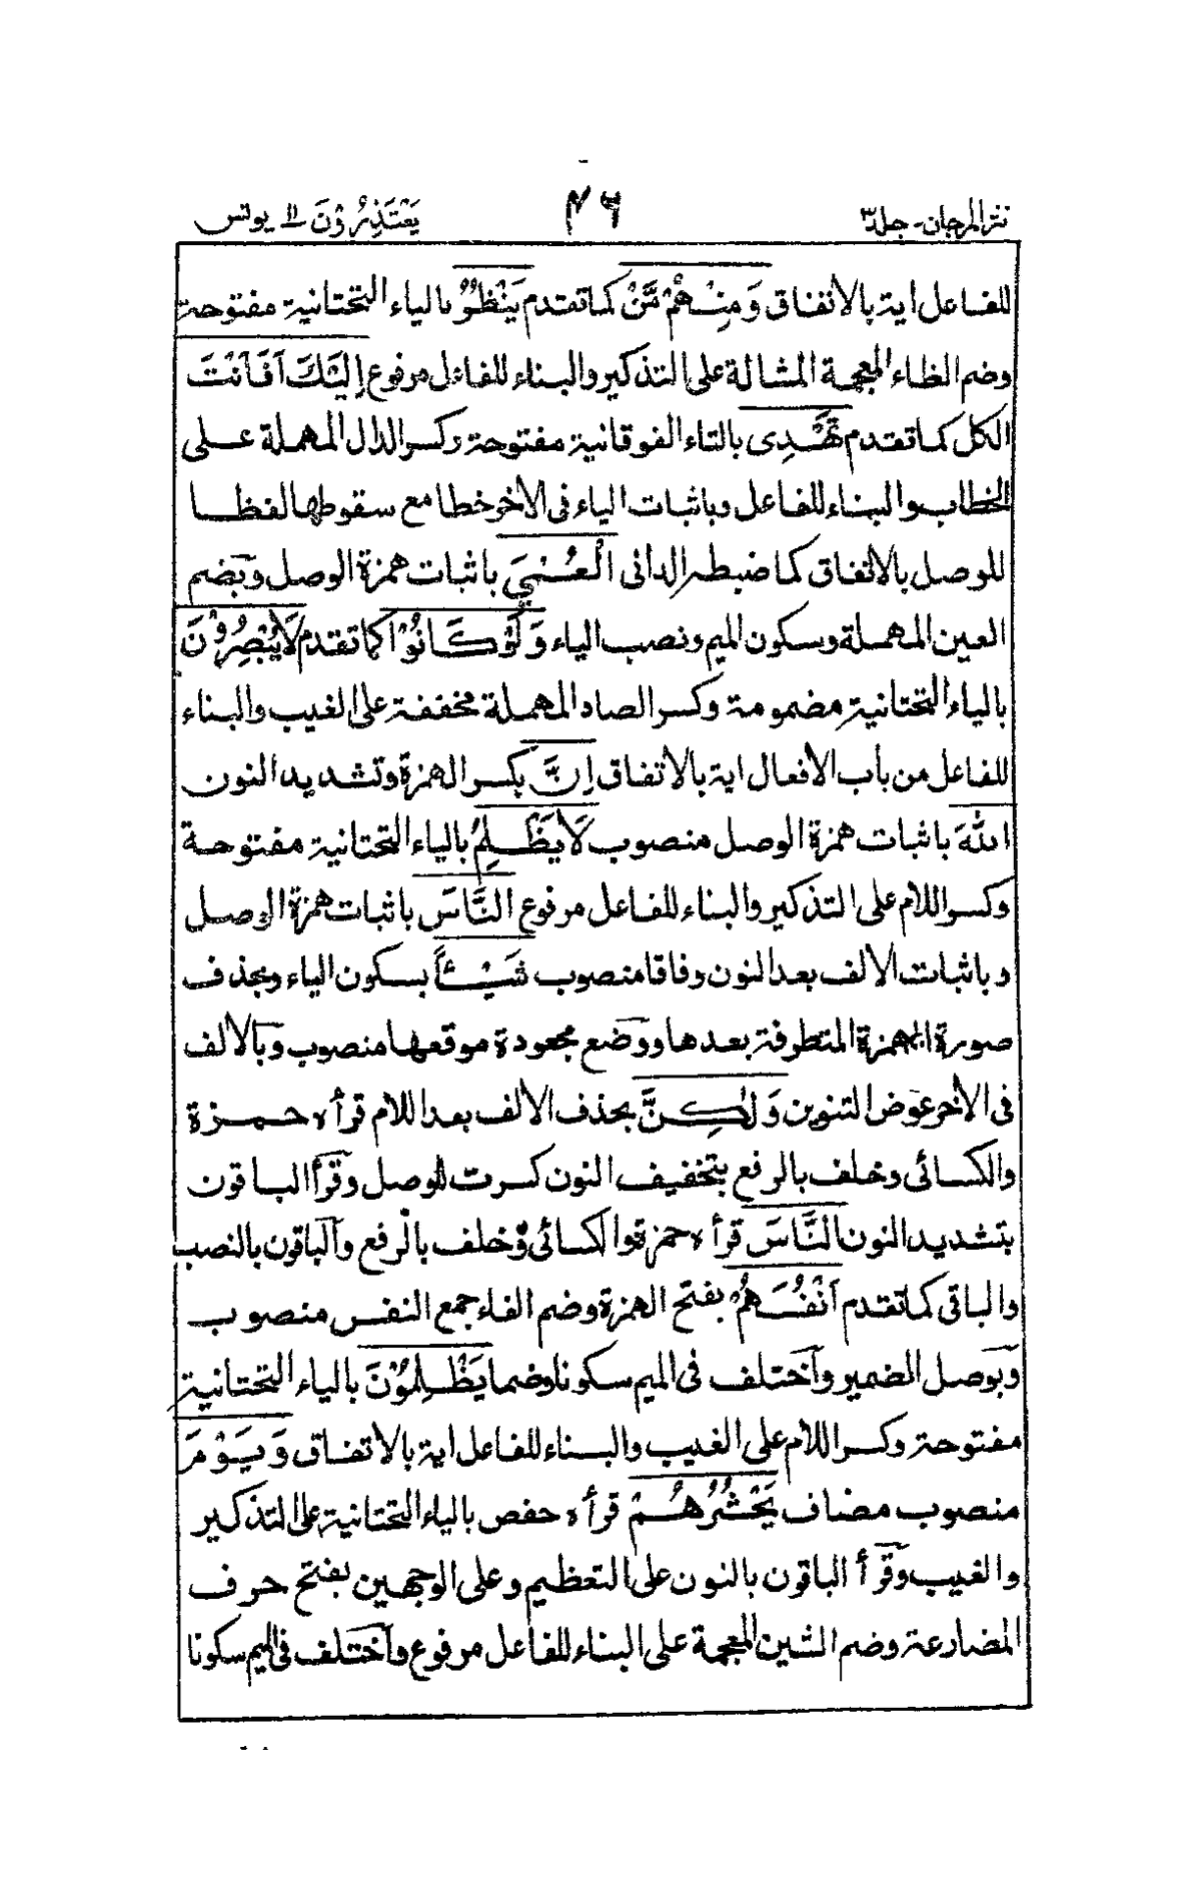 نثر المرجان - جلد ۳
۴۶
يَعْتَذِرُوْنَ ۱۱ يونس
للفاعل اية بالاتفاق وَمِنْهُمْ مَّنْ كما تقدم يَنْظُرُ بالياء التحتانية مفتوحة
وضم الظاء المعجمة المشالة على التذكير والبناء للفاعل مرفوع اِلَيْكَ اَفَاَنْتَ
الكل كما تقدم تَهْدِى بالتاء الفوقانية مفتوحة وكسر الدال المهملة على
الخطاب والبناء للفاعل وباثبات الياء فى الاٰخر خطا مع سقوطها لفظا
للوصل بالاتفاق كما ضبطه الدانى الْعُمْيَ باثبات همزة الوصل وبضم
العين المهملة وسكون الميم ونصب الياء وَلَوْ كَانُوْا كما تقدم لَا يُبْصِرُوْنَ
بالياء التحتانية مضمومة وكسر الصاد المهملة مخففة على الغيب والبناء
للفاعل من باب الافعال اية بالاتفاق اِنَّ بكسر الهمزة وتشديد النون
اللهَ باثبات همزة الوصل منصوب لَا يَظْلِمُ بالياء التحتانية مفتوحة
وكسر اللام على التذكير والبناء للفاعل مرفوع النَّاسَ باثبات همزة الوصل
وباثبات الالف بعد النون وفاقا منصوب شَيْئًا بسكون الياء وبحذف
صورة الهمزة المتطرفة بعدها ووضع مجعودة موقعها منصوب وبالالف
فى الاٰخر عوض التنوين وَلٰكِنَّ بحذف الالف بعد اللام قرأه حمزة
والكسائى وخلف بالرفع بتخفيف النون كسرت للوصل وقرأ الباقون
بتشديد النون النَّاسَ قرأه حمزة والكسائى وخلف بالرفع والباقون بالنصب
والباقى كما تقدم اَنْفُسَهُمْ بفتح الهمزة وضم الفاء جمع النفس منصوب
وبوصل الضمير واختلف فى الميم سكونا وضما يَظْلِمُوْنَ بالياء التحتانية
مفتوحة وكسر اللام على الغيب والبناء للفاعل اية بالاتفاق وَيَوْمَ
منصوب مضاف يَحْشُرُهُمْ قرأه حفص بالياء التحتانية على التذكير
والغيب وقرأ الباقون بالنون على التعظيم وعلى الوجهين بفتح حرف
المضارعة وضم الشين المعجمة على البناء للفاعل مرفوع واختلف فى الميم سكونا